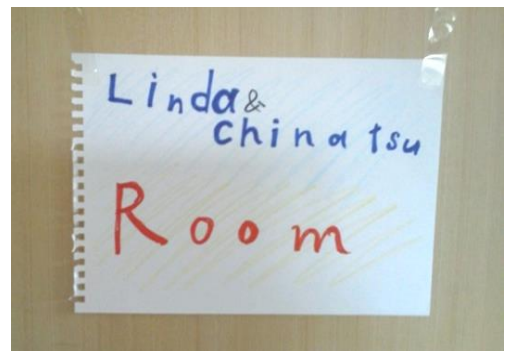 Linda &
chinatsu
Room